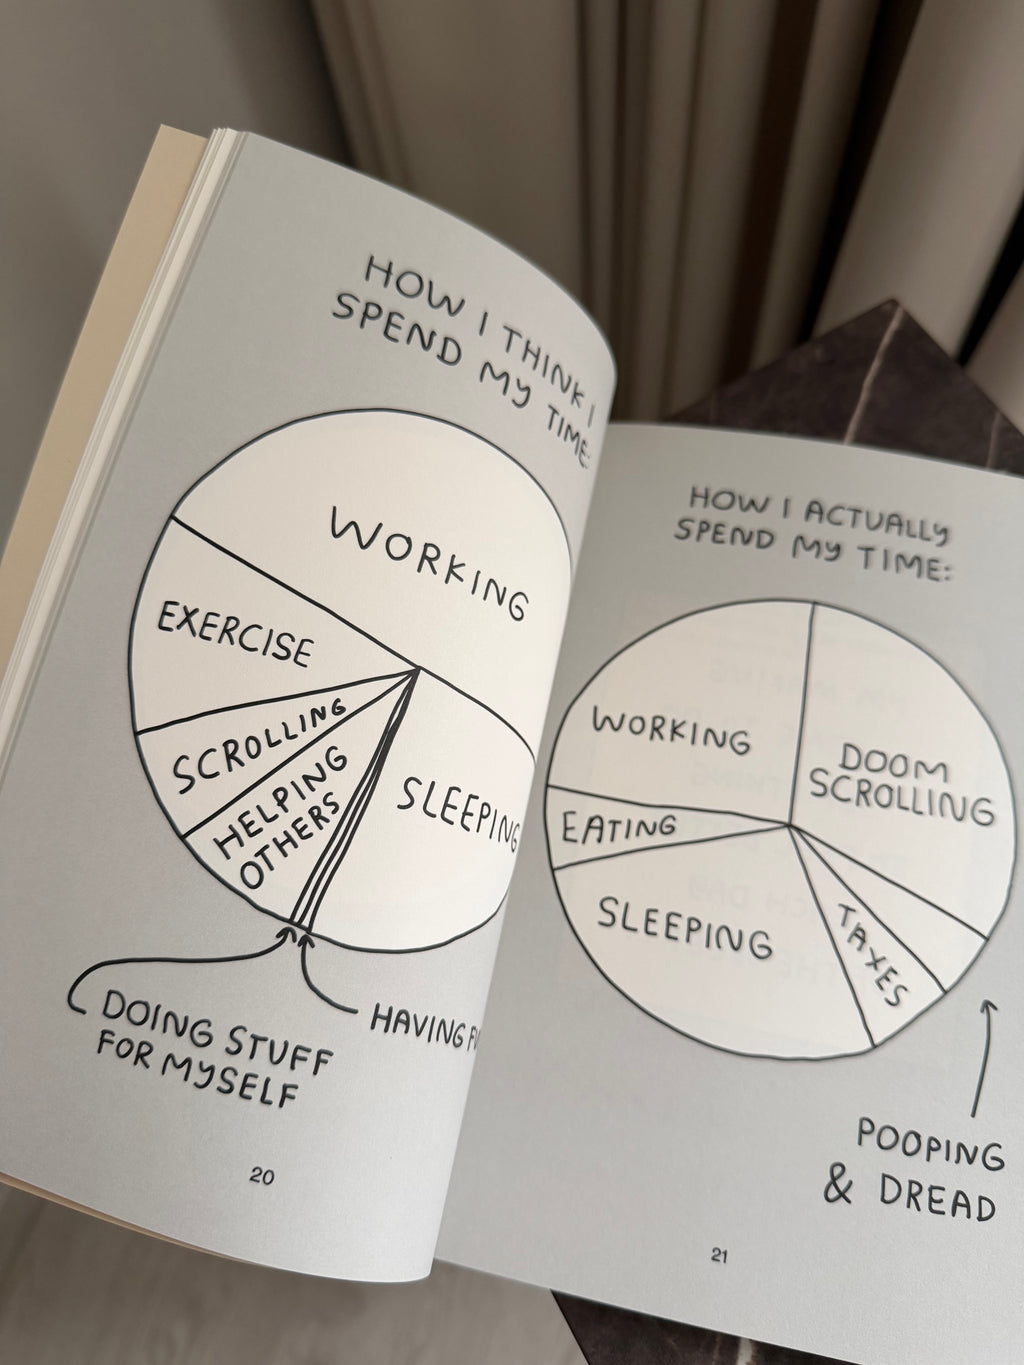 HOW I THINK I
SPEND MY TIME:
WORKING
EXERCISE
SCROLLING
HELPING
OTHERS
SLEEPING
DOING STUFF
FOR MYSELF
HAVING
20
HOW I ACTUALLY
SPEND MY TIME:
WORKING
DOOM
SCROLLING
EATING
SLEEPING
TAXES
POOPING
& DREAD
21